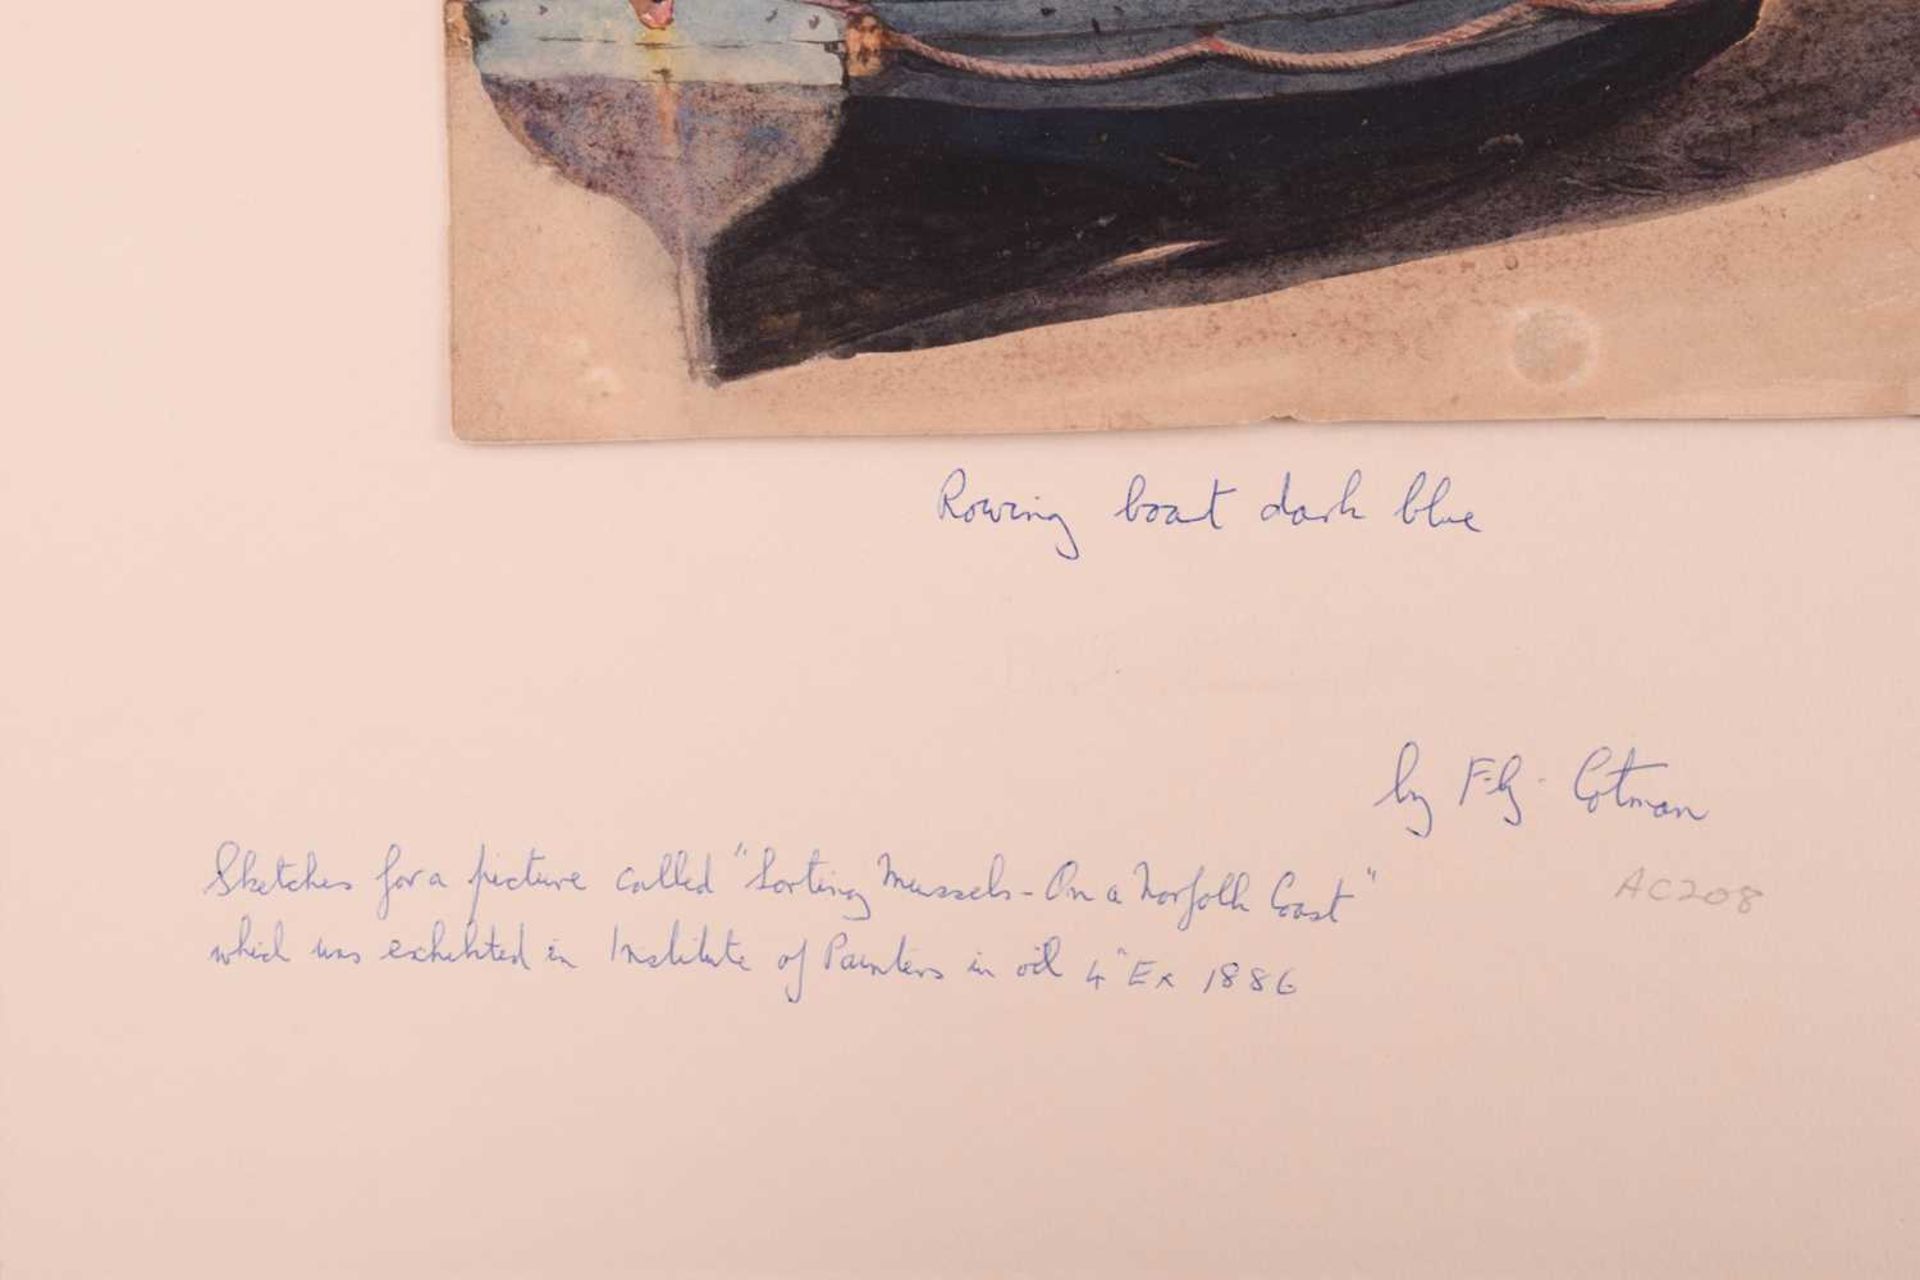 Rowing boat dark blue
by F.G. Cotman
Sketches for a picture called "Sorting Mussels - On a Norfolk Coast"
AC208
which was exhibited in Institute of Painters in oil 4" Ex 1886